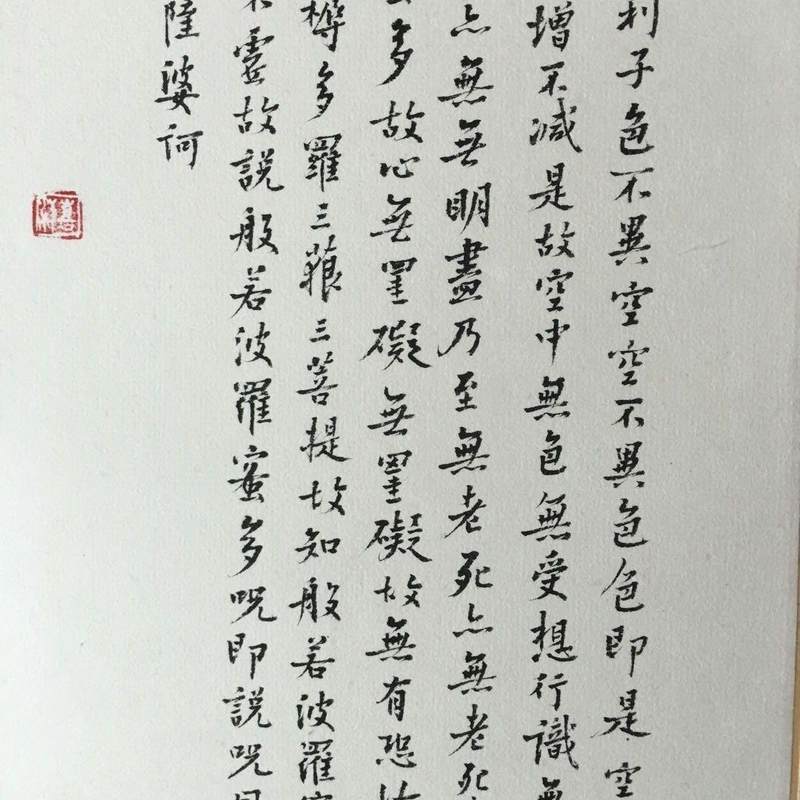 利子色不異空空不異色色即是空
增不減是故空中無色無受想行識無
亦無無明盡乃至無老死亦無老死
多故心無罣礙無罣礙故無有恐怖
槈多羅三藐三菩提故知般若波羅蜜
不虛故說般若波羅蜜多咒即說咒曰
薩婆訶